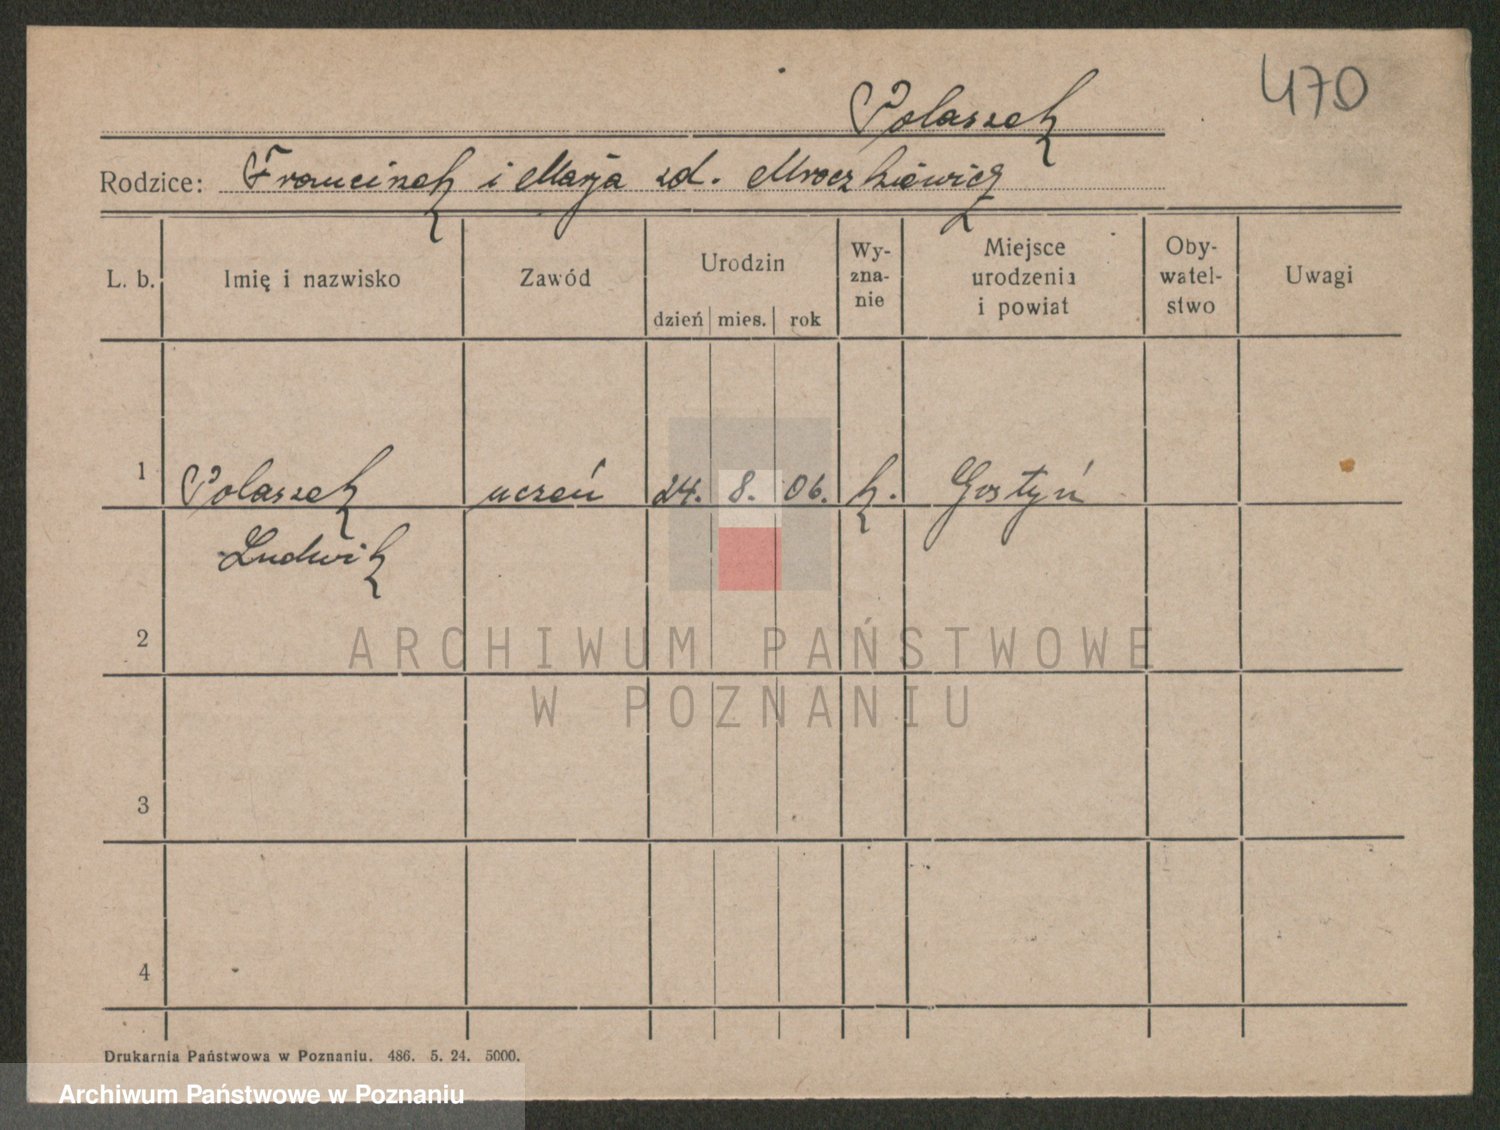 470
Polaszek
Rodzice: Franciszek i Marja zd. Mroczkiewicz
L. b. Imię i nazwisko Zawód Urodzin dzień mies. rok Wy-zna-nie Miejsce urodzenia i powiat Oby-watel-stwo Uwagi
1 Polaszek uczeń 24. 8. 06. k. Gostyń
Ludwik
2
ARCHIWUM PAŃSTWOWE
W POZNANIU
3
4
Drukarnia Państwowa w Poznaniu. 486. 5. 24. 5000.
Archiwum Państwowe w Poznaniu